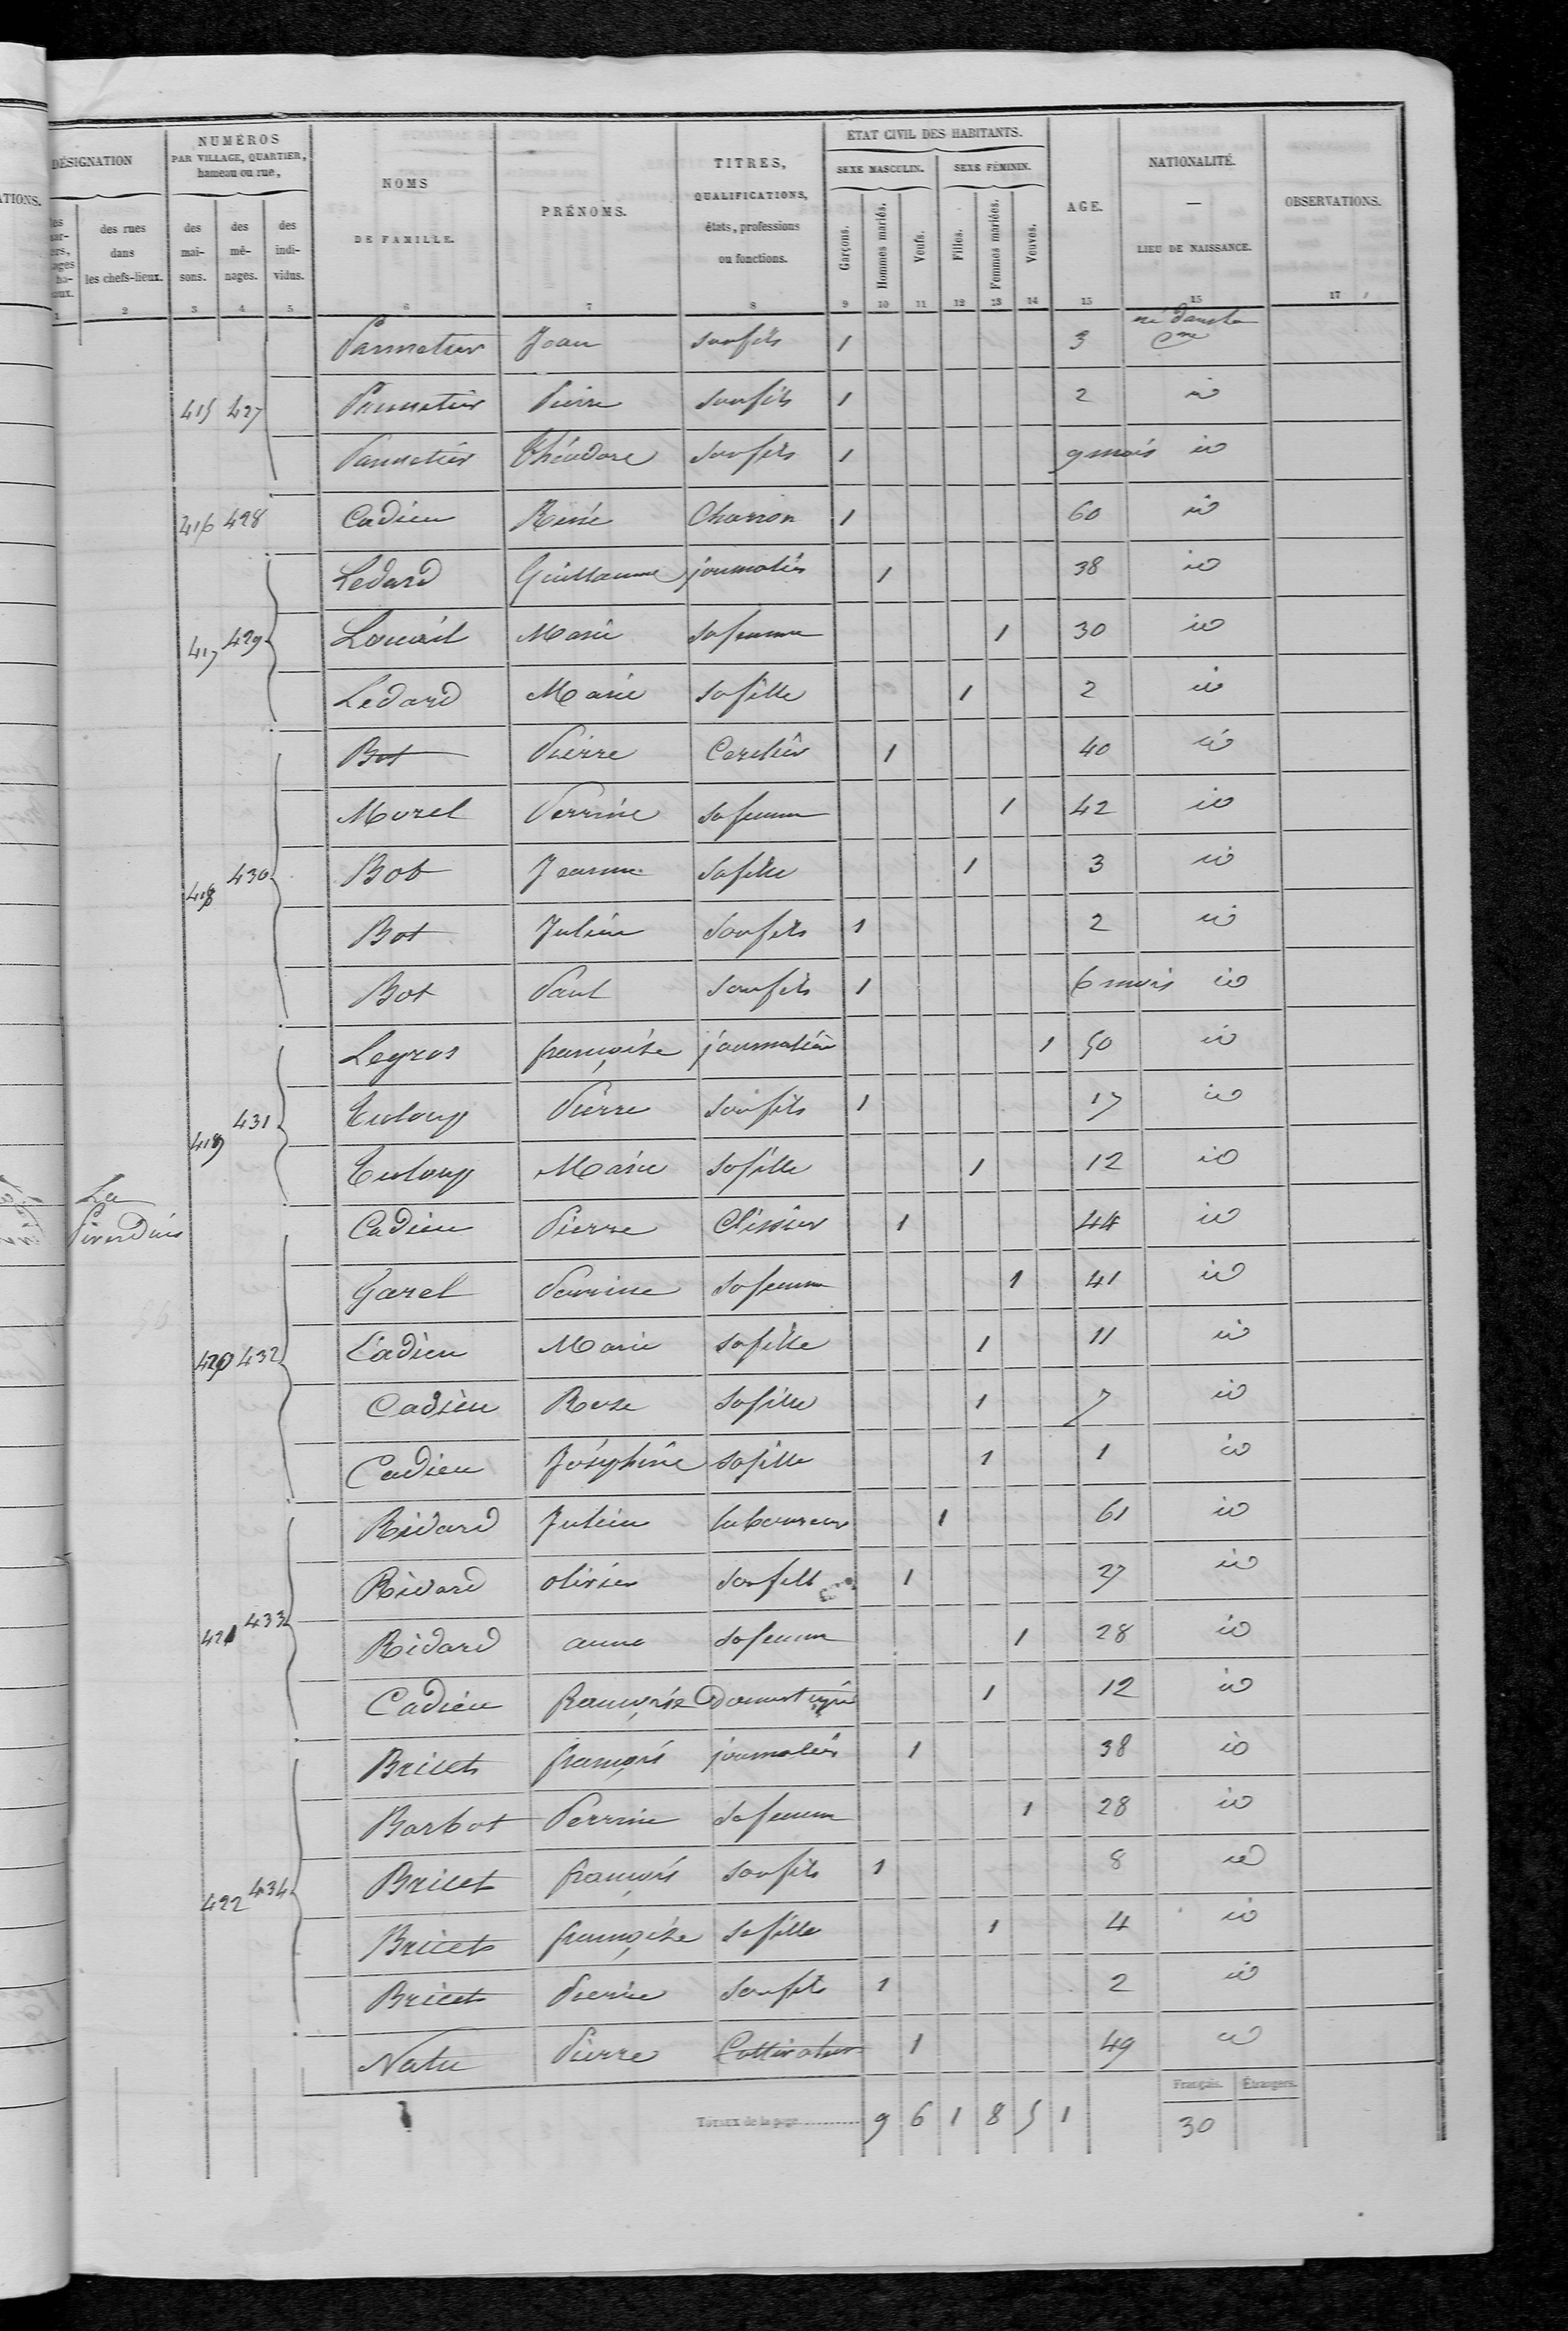 DÉSIGNATION
NUMÉROS
PAR VILLAGE, QUARTIER,
hameau ou rue,
NOMS
DE FAMILLE.
PRÉNOMS.
TITRES,
QUALIFICATIONS,
états, professions
ou fonctions.
ETAT CIVIL DES HABITANTS.
SEXE MASCULIN. SEXE FÉMININ.
AGE.
NATIONALITÉ.
—
LIEU DE NAISSANCE.
OBSERVATIONS.
des rues
dans
les chefs-lieux.
des
mai-
sons.
des
mé-
nages.
des
indi-
vidus.
Garçons. Hommes mariés. Veufs. Filles. Femmes mariées. Veuves.
1 2 3 4 5 6 7 8 9 10 11 12 13 14 15 15 17
Pannetier Jean son fils 1 3 né dans la Cne
415 427 Pannetier Pierre son fils 1 2 id
Pannetier Théodore son fils 1 9 mois id
416 428 Cadieu René Charron 1 60 id
Ledard Guillaume journalier 1 38 id
417 429 Louail Marie sa femme 1 30 id
Ledard Marie sa fille 1 2 id
Bot Pierre Cerclier 1 40 id
Morel Perrine sa femme 1 42 id
418 430 Bot Jeanne sa fille 1 3 id
Bot Julien son fils 1 2 id
Bot Paul son fils 1 6 mois id
Legros françoise journalière 1 50 id
419 431 Tuloup Pierre son fils 1 17 id
Tuloup Marie sa fille 1 12 id
La
Cadieu Pierre Clissier 1 44 id
Garel Perrine sa femme 1 41 id
420 432 Cadieu Marie sa fille 1 11 id
Cadieu Rose sa fille 1 7 id
Cadieu Joséphine sa fille 1 1 id
Ridard Julien laboureur 1 61 id
Ridard olivier son fils 1 27 id
421 433 Ridard anne sa femme 1 28 id
Cadieu françoise domestique 1 12 id
Bricet françois journalier 1 38 id
Barbot Perrine sa femme 1 28 id
422 434 Bricet françois son fils 1 8 id
Bricet françoise sa fille 1 4 id
Bricet Pierre son fils 1 2 id
Natu Pierre Cultivateur 1 49 id
Français. Étrangers.
Totaux de la page 9 6 1 8 5 1 30